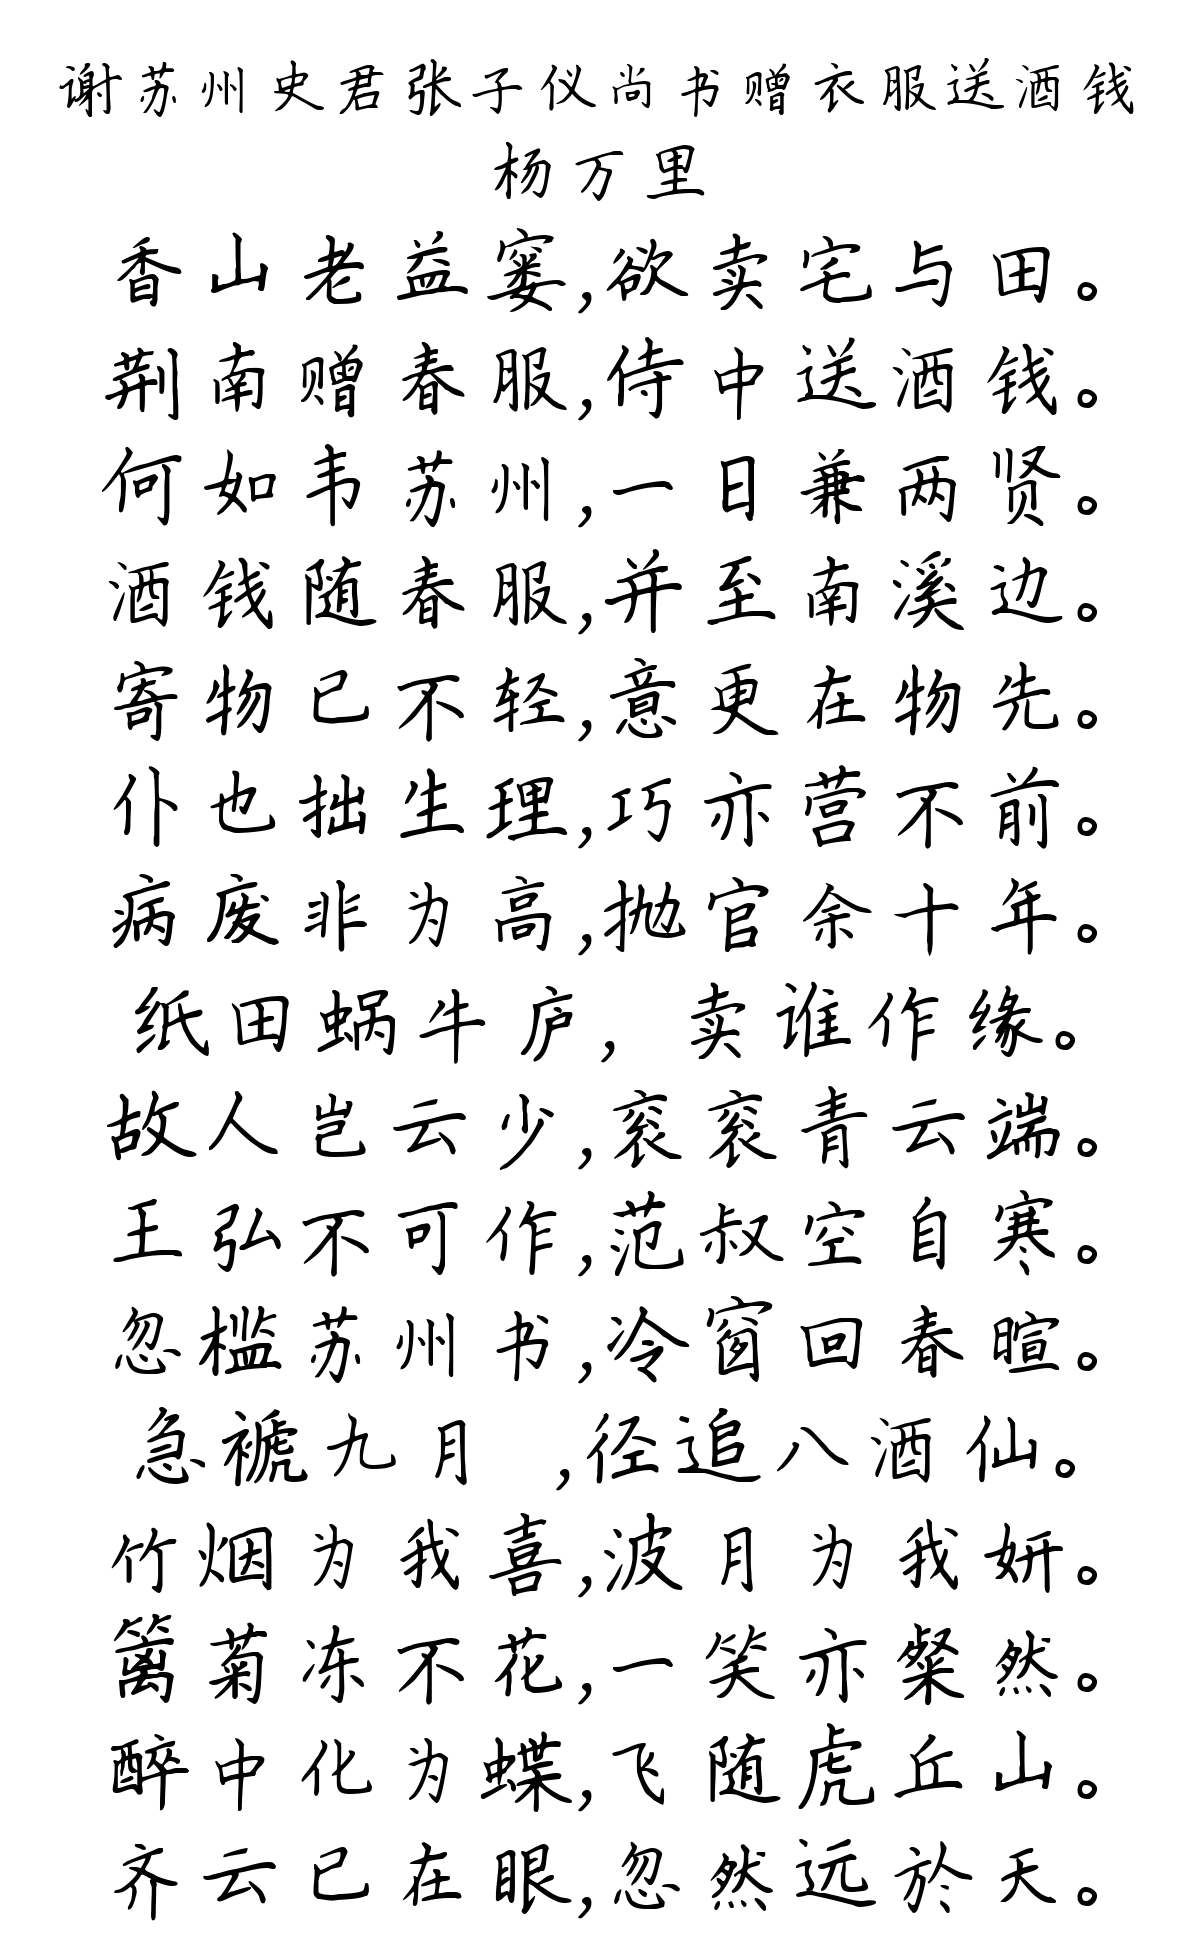 谢苏州史君张子仪尚书赠衣服送酒钱
杨万里
香山老益窭,欲卖宅与田。
荆南赠春服,侍中送酒钱。
何如韦苏州,一日兼两贤。
酒钱随春服,并至南溪边。
寄物已不轻,意更在物先。
仆也拙生理,巧亦营不前。
病废非为高,抛官余十年。
纸田蜗牛庐,卖谁作缘。
故人岂云少,衮衮青云端。
王弘不可作,范叔空自寒。
忽槛苏州书,冷窗回春暄。
急褫九月 ,径追八酒仙。
竹烟为我喜,波月为我妍。
篱菊冻不花,一笑亦粲然。
醉中化为蝶,飞随虎丘山。
齐云已在眼,忽然远於天。